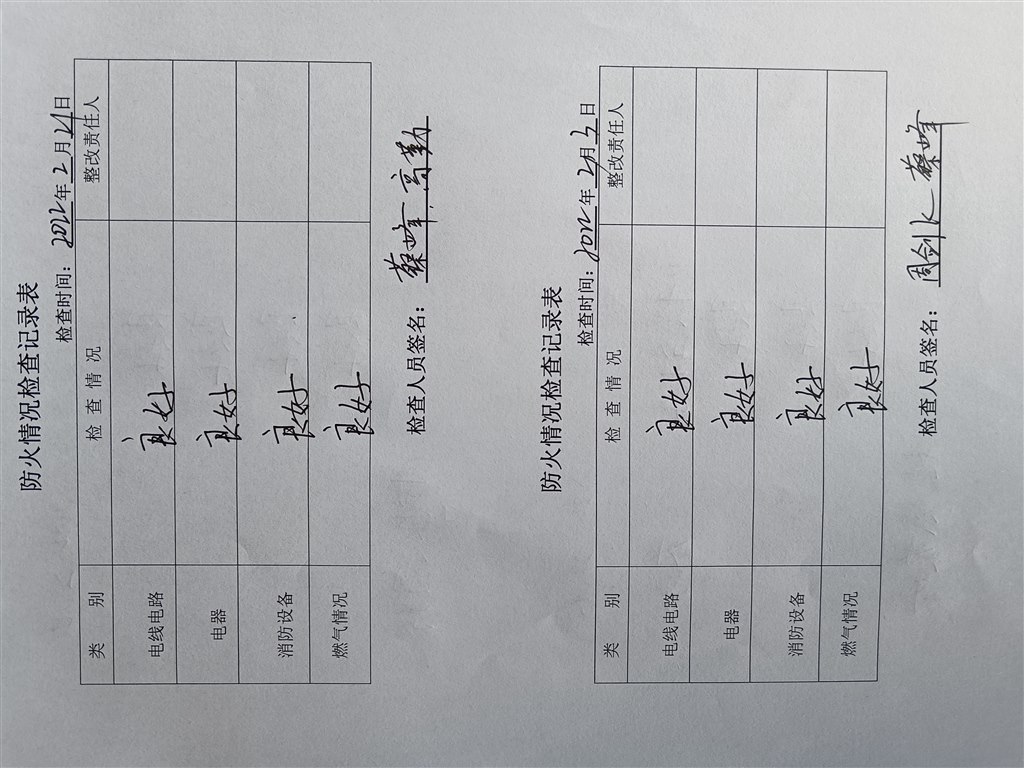 防火情况检查记录表
检查时间：2022年2月21日
类 别 检 查 情 况 整改责任人
电线电路 良好
电器 良好
消防设备 良好
燃气情况 良好
检查人员签名： 蔡峰，高勤
防火情况检查记录表
检查时间：2022年2月3日
类 别 检 查 情 况 整改责任人
电线电路 良好
电器 良好
消防设备 良好
燃气情况 良好
检查人员签名： 周剑 蔡峰